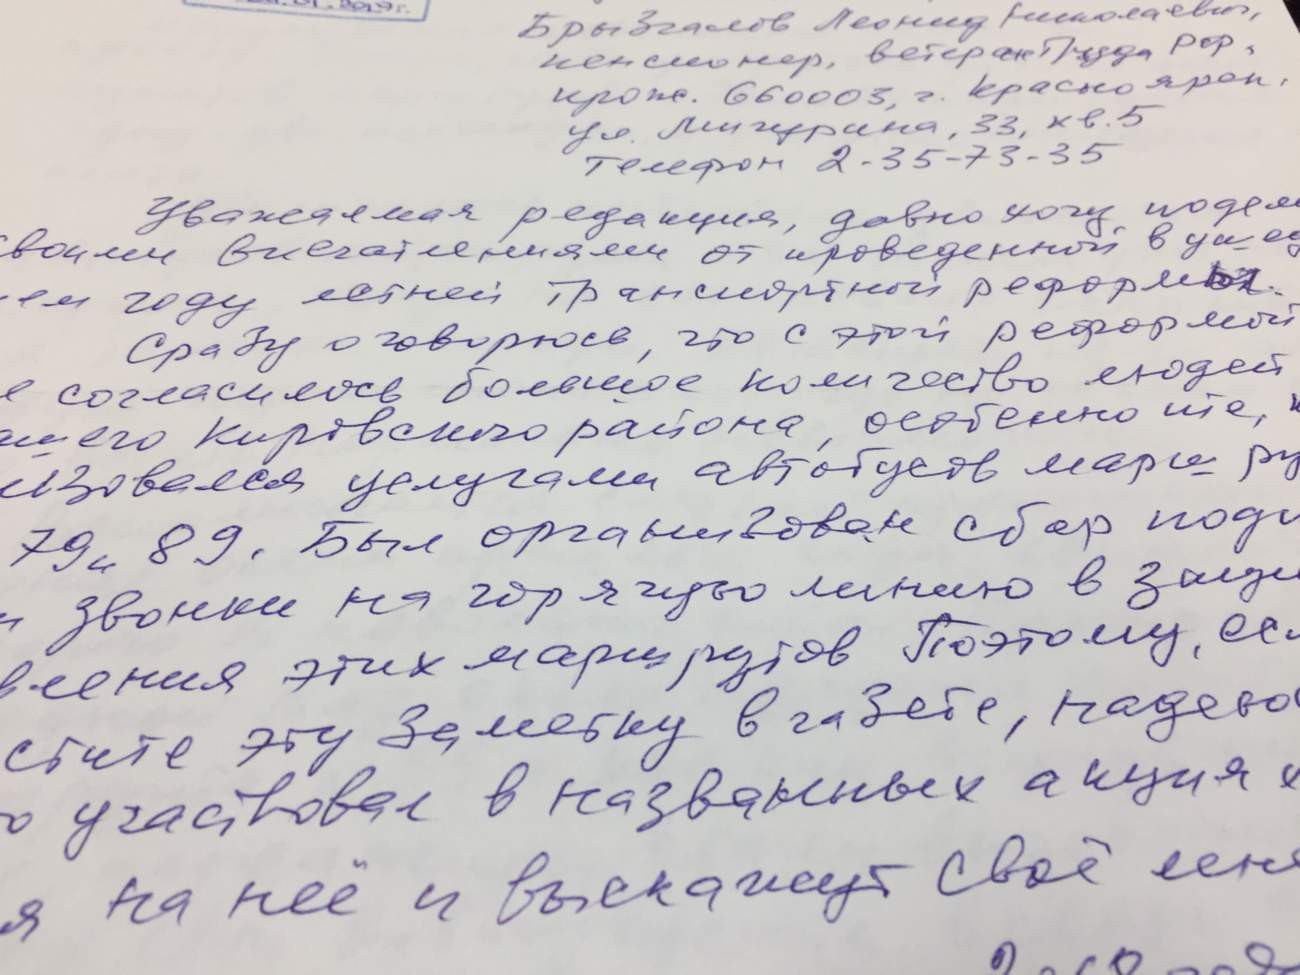 01.2019г.
Брызгалов Леонид Николаевич,
пенсионер, ветеран Труда РФ,
прож. 660003, г. Красноярск,
ул. Мичурина, 33, кв. 5
телефон 2-35-73-35
Уважаемая редакция, давно хочу подел
своими впечатлениями от проведенной в ушед
ем году летней транспортной реформы.
Сразу оговорюсь, что с этой реформой
е согласилось большое количество людей
ашего Кировского района, особенно те,
ьзовался услугами автобусов марш ру
79 и 89. Был организован сбор подп
и звонки на горячую линию в защи
вления этих маршрутов Поэтому, есл
стите эту заметку в газете, надеюс
о участвовал в названных акциях
я на неё и выскажут своё мне